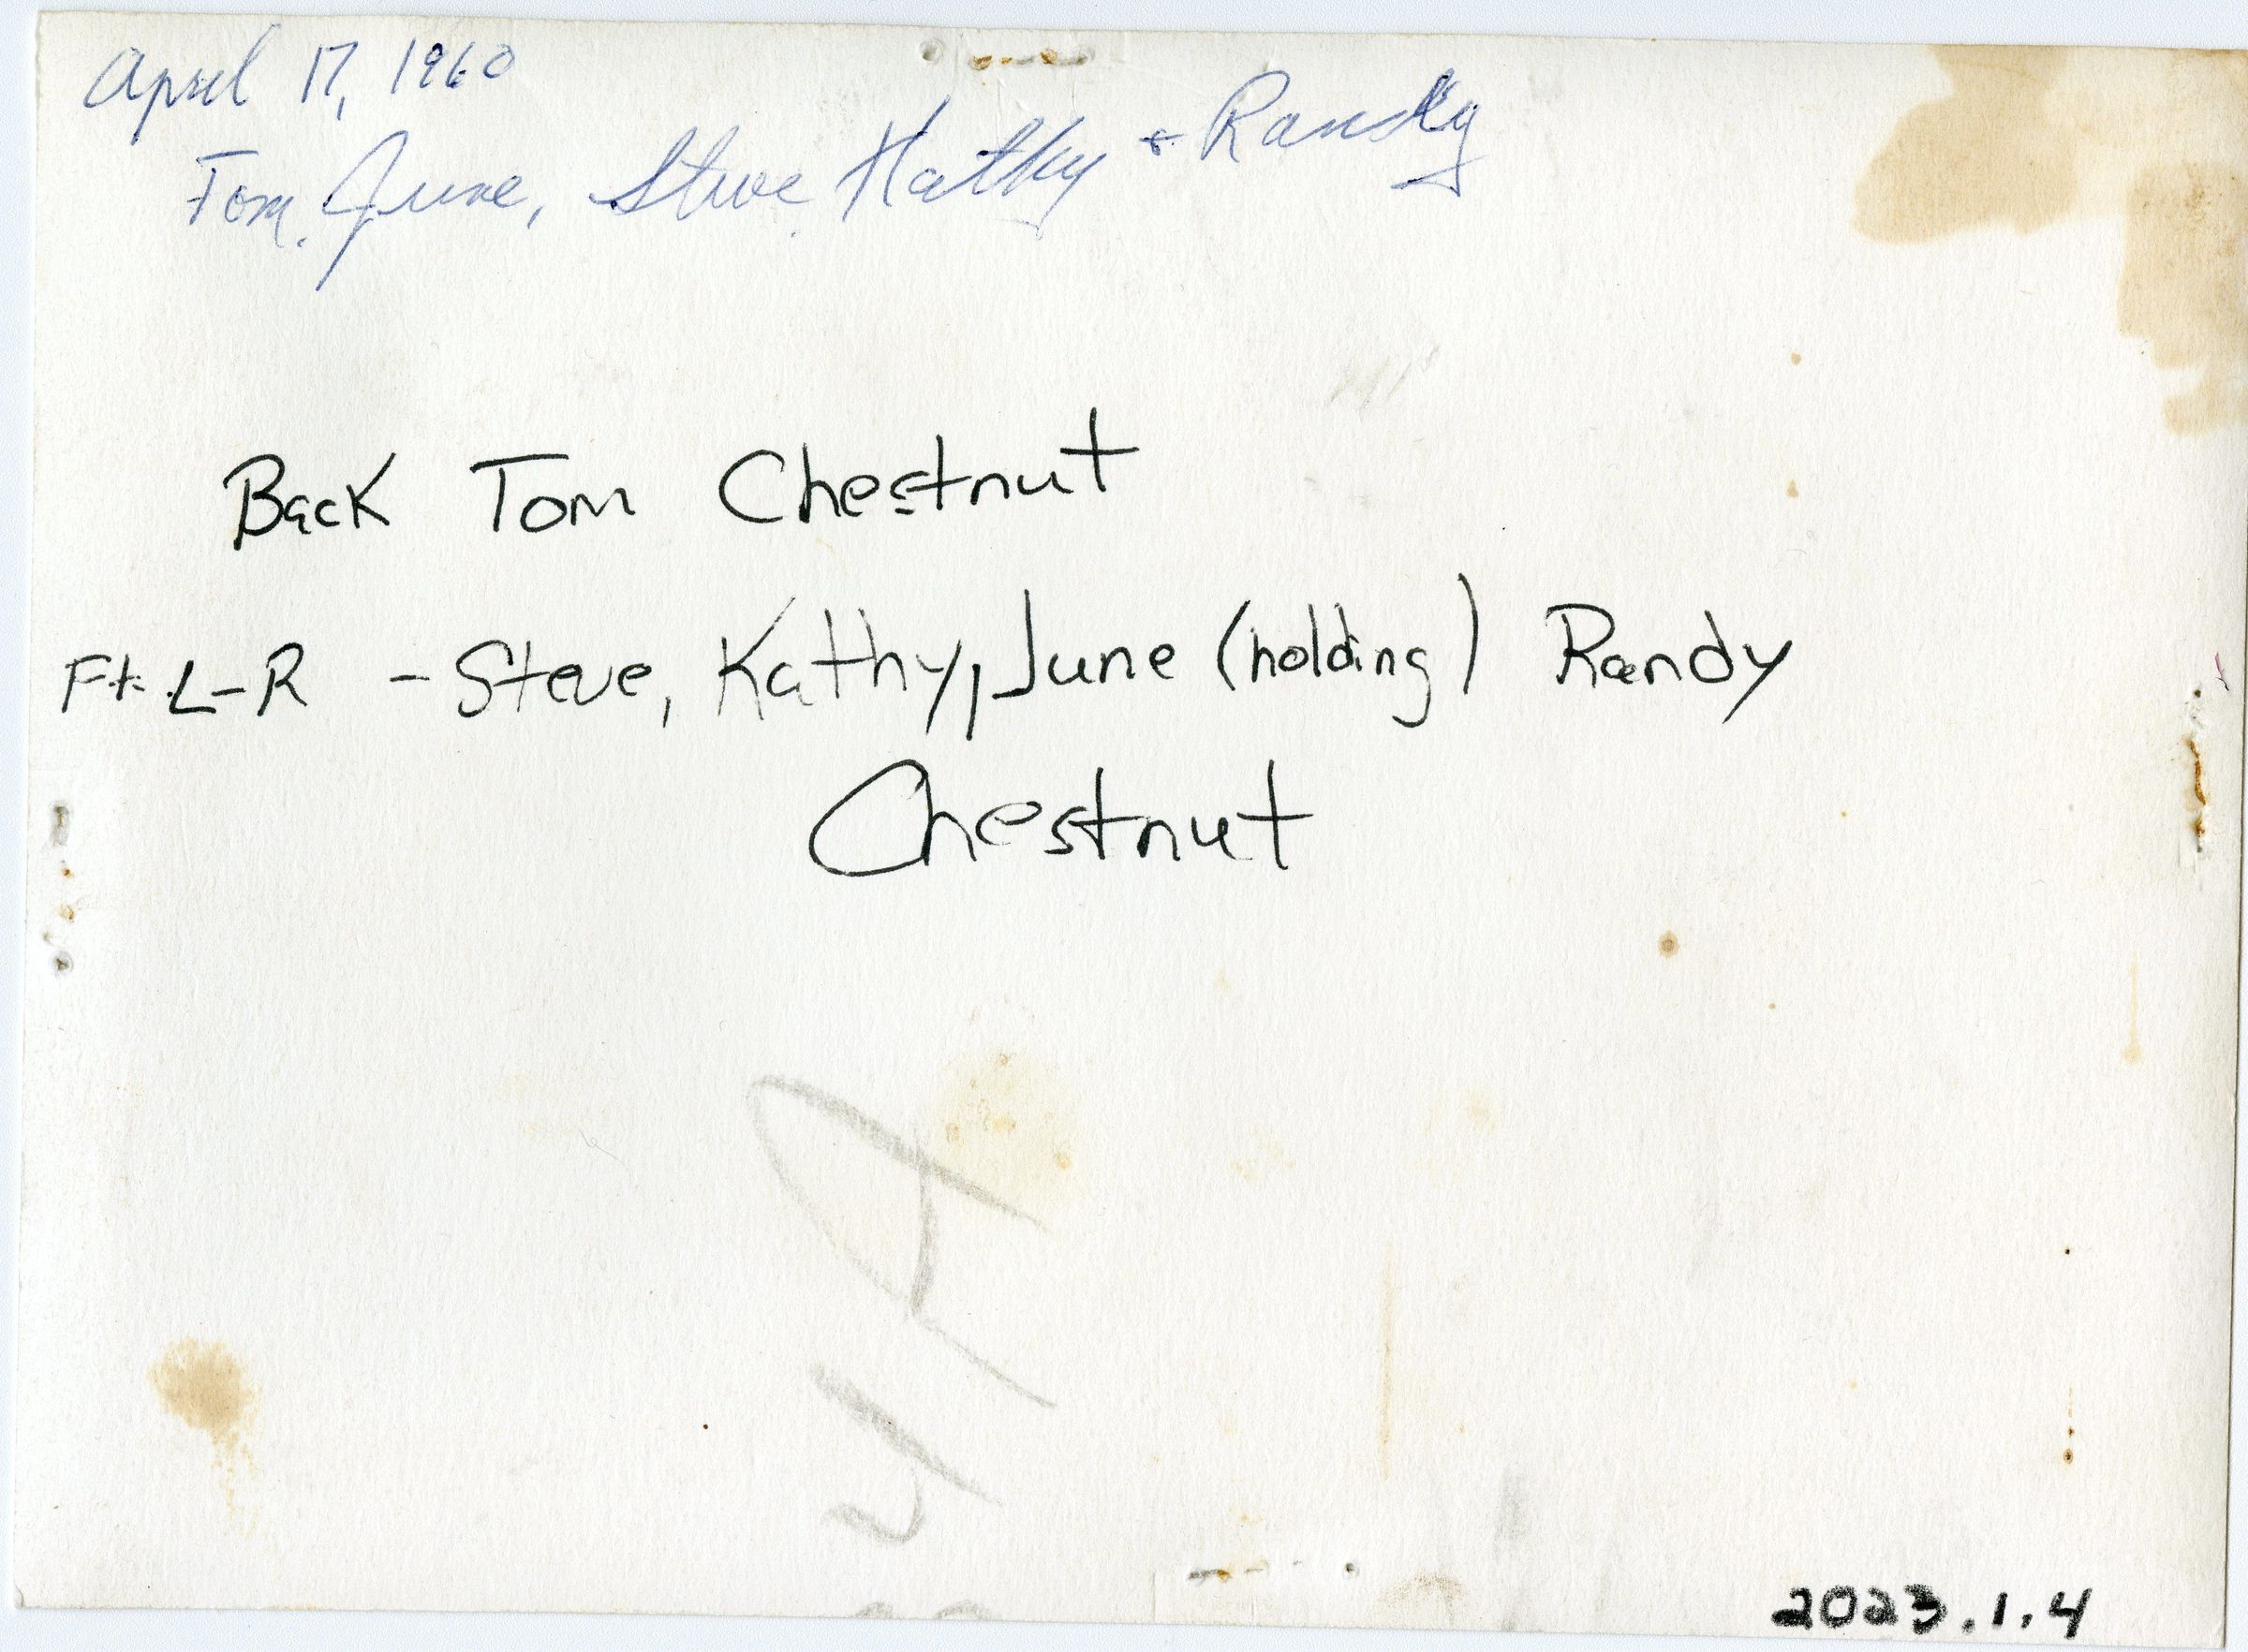 April 17, 1960
Tom. June, Steve Kathy + Randy
Back Tom Chestnut
Ft. L-R - Steve, Kathy, June (holding) Randy
Chestnut
2023.1.4